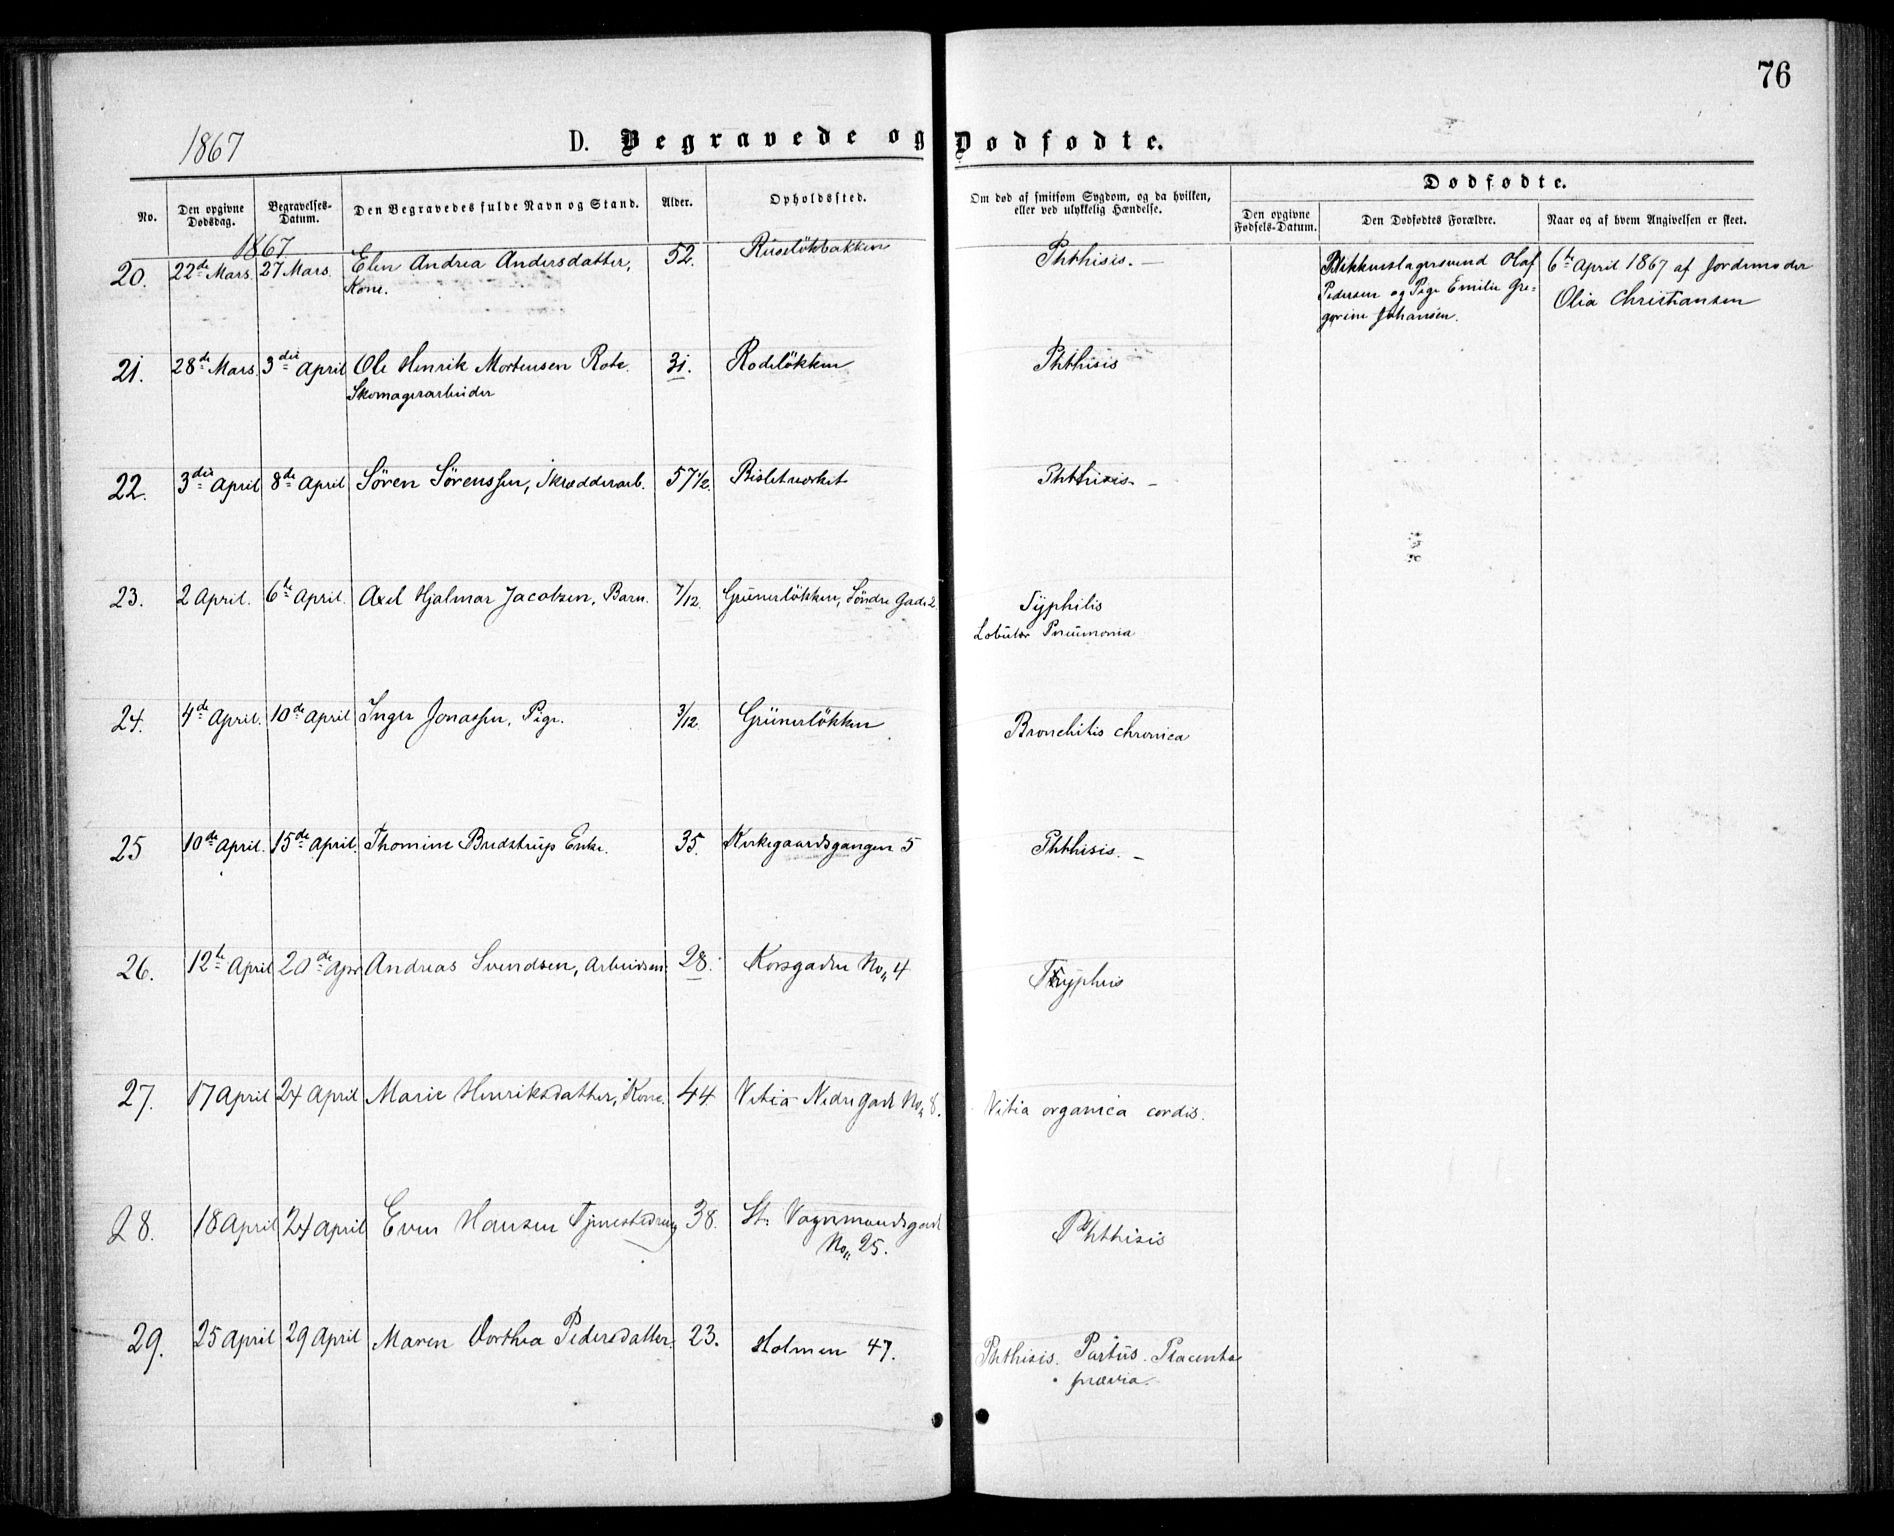 76
1867
D. Begravede og Dødfødte.
No.
Den opgivne Dødsdag.
Begravelses-Datum.
Den Begravedes fulde Navn og Stand.
Alder.
Opholdssted.
Om død af smitsom Sygdom, og da hvilken,
eller ved ulykkelig Hændelse.
Dødfødte.
Den opgivne Fødsels-Datum.
Den Dødfødtes Forældre.
Naar og af hvem Angivelsen er skeet.
1867
20. 22de Mars. 27 Mars. Elen Andrea Andersdatter, 52. Ruseløkbakken Phthisis. — Blikkenslagersvend Olaf 6te April 1867 af Jordemoder
Kone. Pedersen og Pige Emilie Gre- Olia Christiansen
gorine Johansen.
21. 28de Mars. 3die April Ole Henrik Mortensen Rote. 31. Rodeløkken Phthisis
Skomagerarbeider
22. 3die April 8de April Søren Sørenssen, Skrædderarb. 57 1/2. Bisletverket Phthisis —
23. 2 April. 6te April. Axel Hjalmar Jacobsen, Barn. 7/12. Grünerløkken, Søndre Gade 2. Syphilis
Lobulær Pneumonia
24. 4de April. 10de April Inger Jonassen, Pige. 3/12. Grünerløkken Bronchitis chronica
25 10de April. 15de April. Thomine Budstrup Enke. 35. Kirkegaardsgangen 5 Phthisis. —
26. 12te April 20de Apr Andreas Svendsen, Arbeidsm. 28. Korsgaden No. 4 Typhus
27. 17 April 24 April Marie Henriksdatter, Kone. 44 Vitia Nedregade No. 8. Vitia organica cordis.
28. 18 April 24 April Even Hansen Tjenestedreng 38. St. Vognmandsgade Phthisis
No. 25.
29. 25 April 29 April Maren Dorthea Pedersdatter. 23. Holmen 47. Phthisis. Partus. Placenta
prævia.